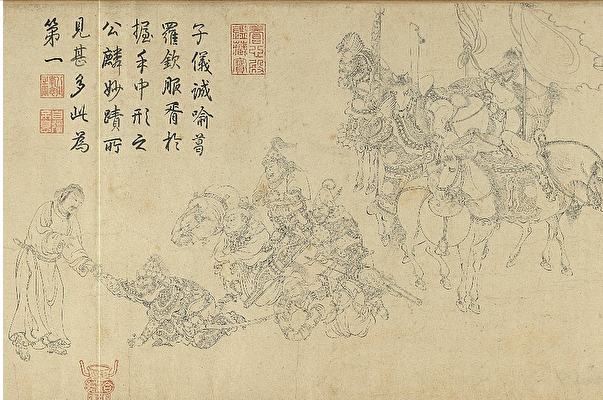 子儀誠喻蕃
羅欽服胥於
握手中形之
公麟妙蹟所
見甚多此為
第一